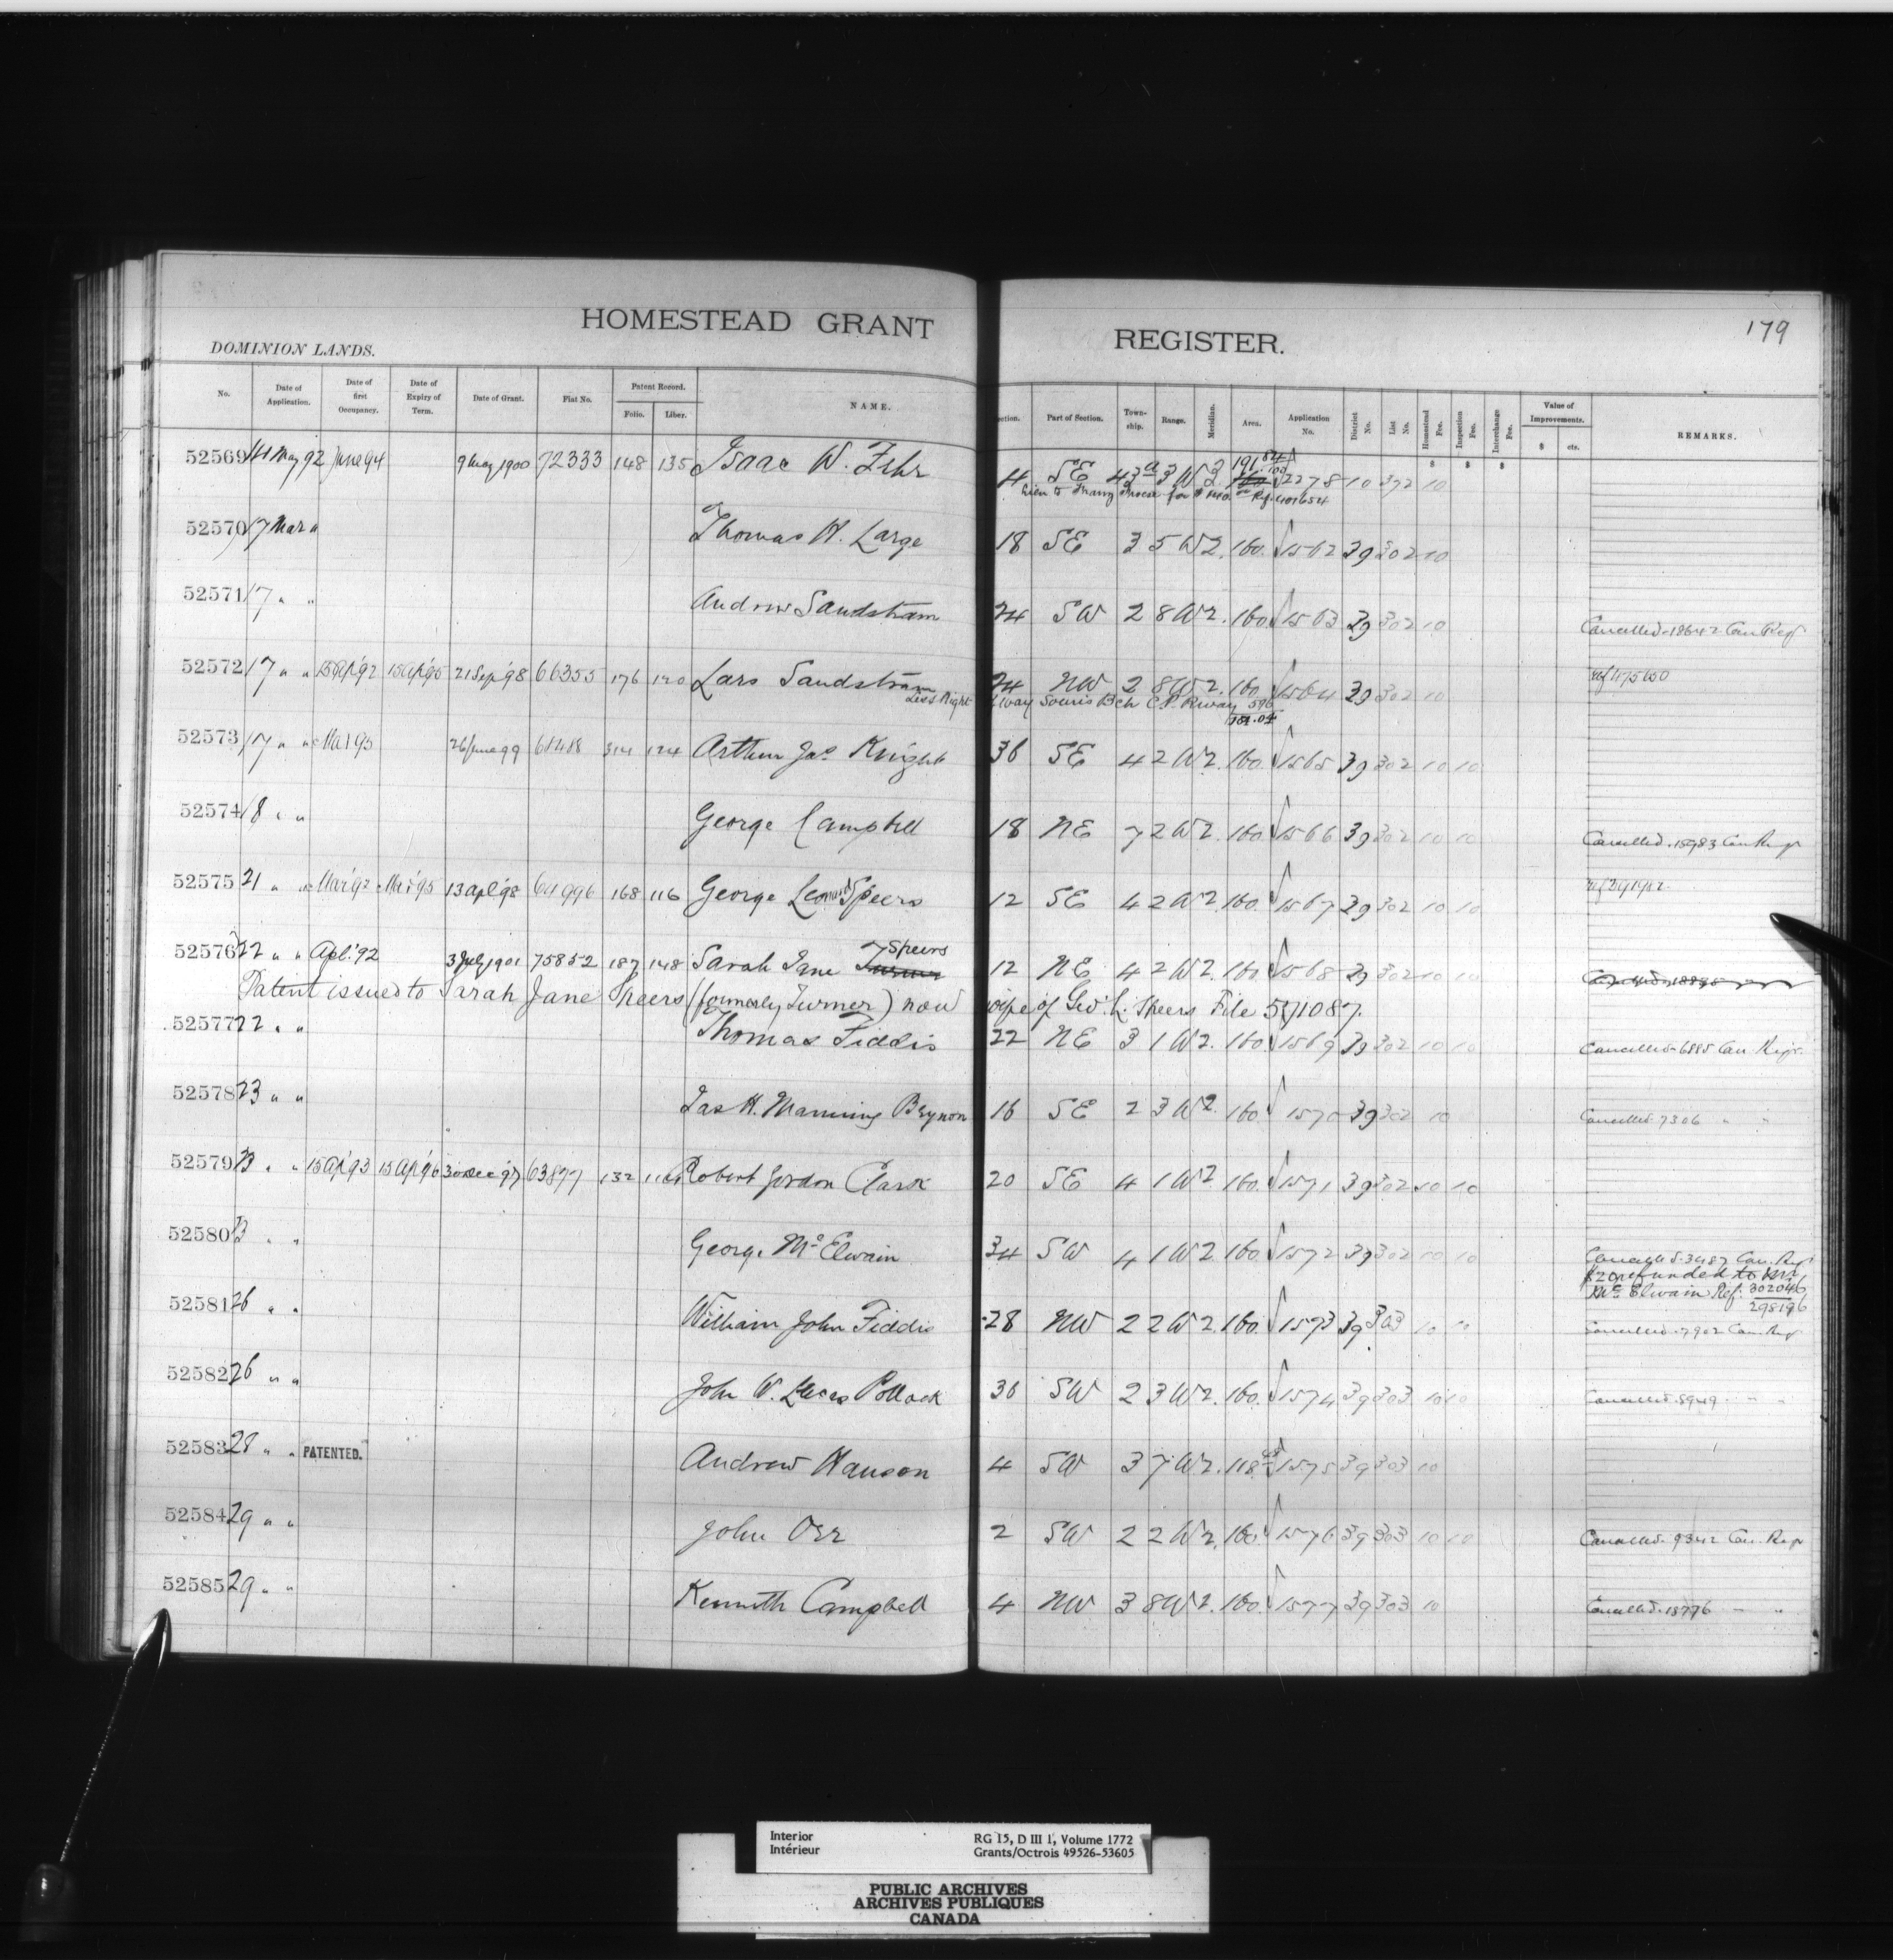 HOMESTEAD GRANT REGISTER.
179
DOMINION LANDS.
No. Date of Application. Date of first Occupancy. Date of Expiry of Term. Date of Grant. Fiat No. Patent Record. Folio. Liber. NAME. Section. Part of Section. Township. Range. Meridian. Area. Application No. District No. List No. Homestead Fee. Inspection Fee. Interchange Fee. Value of Improvements. $ cts. REMARKS.
52569 14 May 92 June 94 9 May 1900 72333 148 135 Isaac W. Fehr 4 SE 43 a 3 W 3. 191 84/100 2278 10 372 10
52570 17 Mar " Thomas H. Large 18 SE 3 5 W 2. 160. 1562 39 302 10
52571 17 " " Andrew Sandstram 24 SW 2 8 W 2. 160. 1563 39 302 10 Cancelled. 18642 Can Regr
52572 17 " " 15 Ap '92 15 Ap '95 21 Sep '98 66355 176 120 Lars Sandstram 24 NW 2 8 W 2. 160. 1564 39 302 10 ref 475650
Less Right of way Souris Bch C.P. Rway 5.96
154.04
52573 17 " " Mar 93 26 June 99 68488 314 124 Arthur Jas Knight 36 SE 4 2 W 2. 160. 1565 39 302 10 10
52574 18 " " George Campbell 18 NE 7 2 W 2. 160. 1566 39 302 10 10 Cancelled. 15983 Can Regr
52575 21 " " Mar '92 Mar '95 13 Apl '98 64996 168 116 George Leonard Speers 12 SE 4 2 W 2. 160. 1567 39 302 10 10
52576 22 " " Apl. '92 3 July 1901 75852 187 148 Sarah Jane Turner Speers 12 NE 4 2 W 2. 160. 1568 39 302 10 10
Patent issued to Sarah Jane Speers (formerly Turner) now wife of Geo. L. Speers File 571087.
52577 22 " " Thomas Fiddis 22 NE 3 1 W 2. 160. 1569 39 302 10 10 Cancelled. 6885 Can Regr.
52578 23 " " Jas H. Manning Beynon 16 SE 2 3 W 2. 160. 1570 39 302 10 Cancelled. 7306 " "
52579 23 " " 15 Ap '93 15 Ap '96 30 Dec '97 63877 132 114 Robert Gordon Clark 20 SE 4 1 W 2. 160. 1571 39 302 10 10
52580 23 " " George McElwain 34 SW 4 1 W 2. 160. 1572 39 302 10 10 Cancelled. 3487 Can. Regr
$20 refunded to Mr
McElwain Ref: 302046
298196
52581 26 " " William John Fiddis 28 NW 2 2 W 2. 160. 1573 39 303 10 10 Cancelled. 7902 Can. Regr
52582 26 " " John W. Lucas Pollock 36 SW 2 3 W 2. 160. 1574 39 303 10 10 Cancelled. 8949 " "
52583 28 " " PATENTED. Andrew Hanson 4 SW 3 7 W 2. 118. 1575 39 303 10
52584 29 " " John Orr 2 SW 2 2 W 2. 160. 1576 39 303 10 10 Cancelled. 9342 Can. Regr
52585 29 " " Kenneth Campbell 4 NW 3 8 W 2. 160. 1577 39 303 10 Cancelled. 18776 " "
Interior RG 15, D III 1, Volume 1772
Intérieur Grants/Octrois 49526-53605
PUBLIC ARCHIVES
ARCHIVES PUBLIQUES
CANADA